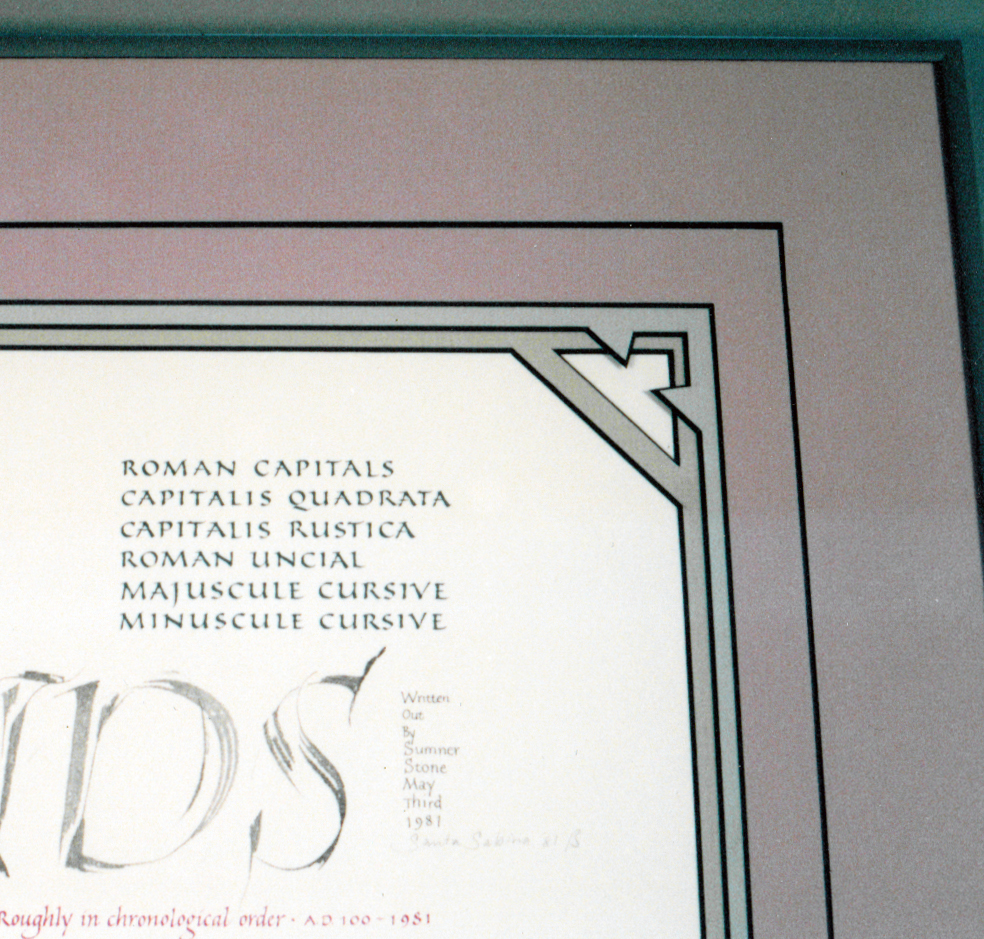 ROMAN CAPITALS
CAPITALIS QUADRATA
CAPITALIS RUSTICA
ROMAN UNCIAL
MAJUSCULE CURSIVE
MINUSCULE CURSIVE
NDS
Written
Out
By
Sumner
Stone
May
Third
1981
Santa Sabina
Roughly in chronological order · A.D. 100 - 1981